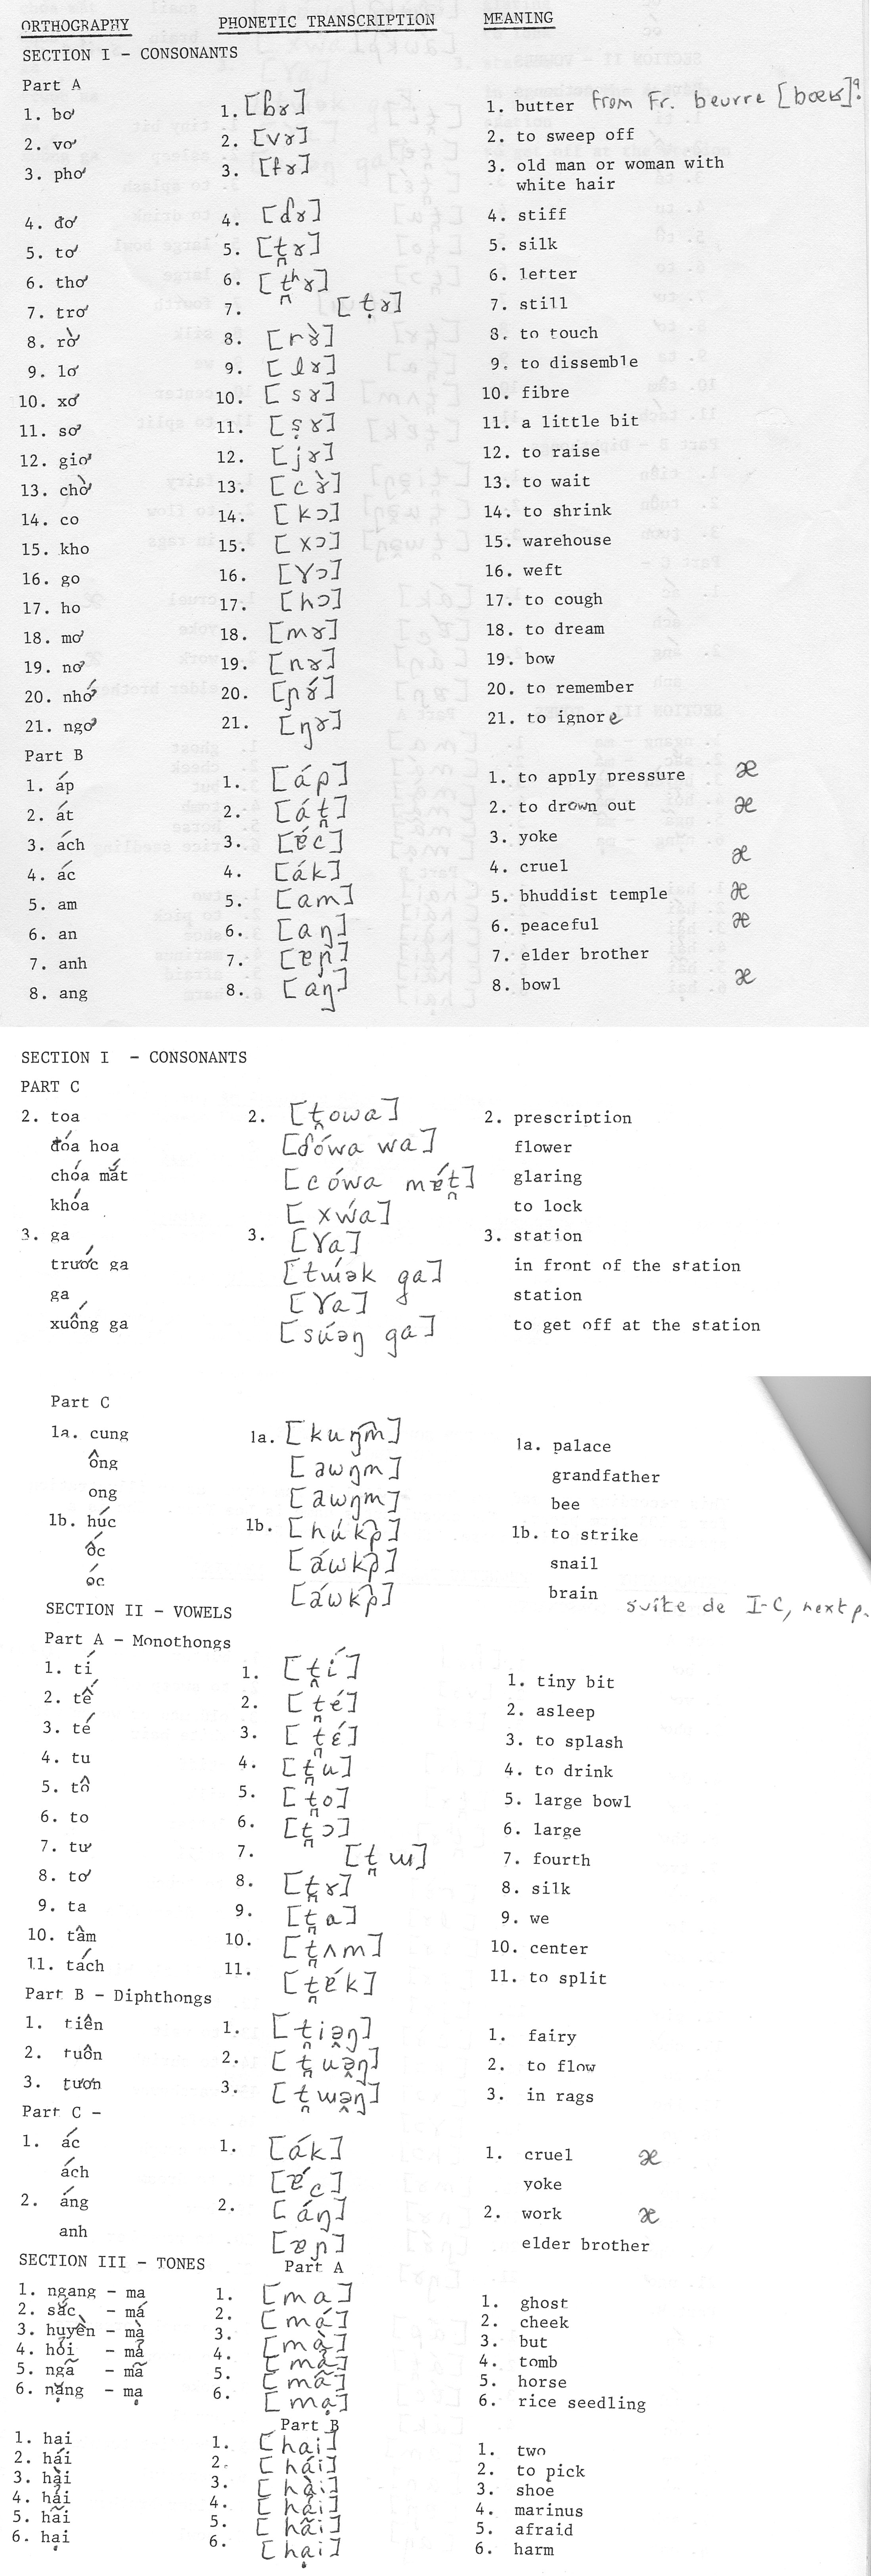 ORTHOGRAPHY PHONETIC TRANSCRIPTION MEANING
SECTION I - CONSONANTS
Part A
1. bơ 1. [ɓɤ] 1. butter from Fr. beurre [bœʁ]?
2. vơ 2. [vɤ] 2. to sweep off
3. phơ 3. [fɤ] 3. old man or woman with
white hair
4. đơ 4. [ɗɤ] 4. stiff
5. tơ 5. [t̪ɤ] 5. silk
6. thơ 6. [t̪ʰɤ] 6. letter
7. trơ 7. [ṭɤ] 7. still
8. rờ 8. [rɤ̀] 8. to touch
9. lơ 9. [lɤ] 9. to dissemble
10. xơ 10. [sɤ] 10. fibre
11. sơ 11. [ṣɤ] 11. a little bit
12. giơ 12. [jɤ] 12. to raise
13. chờ 13. [cɤ̀] 13. to wait
14. co 14. [kɔ] 14. to shrink
15. kho 15. [xɔ] 15. warehouse
16. go 16. [ɣɔ] 16. weft
17. ho 17. [hɔ] 17. to cough
18. mơ 18. [mɤ] 18. to dream
19. nơ 19. [nɤ] 19. bow
20. nhớ 20. [ɲɤ́] 20. to remember
21. ngơ 21. [ŋɤ] 21. to ignore
Part B
1. áp 1. [áp] 1. to apply pressure æ
2. át 2. [át̪] 2. to drown out æ
3. ách 3. [ɐ́c] 3. yoke
4. ác 4. [ák] 4. cruel æ
5. am 5. [am] 5. bhuddist temple æ
6. an 6. [aŋ] 6. peaceful æ
7. anh 7. [ɐɲ] 7. elder brother
8. ang 8. [aŋ] 8. bowl æ
SECTION I - CONSONANTS
PART C
2. toa 2. [t̪owa] 2. prescription
đóa hoa [ɗówa wa] flower
chóa mắt [cówa mɐ́t̪] glaring
khóa [xẃa] to lock
3. ga 3. [ɣa] 3. station
trước ga [tɯ́ək ga] in front of the station
ga [ɣa] station
xuống ga [súəŋ ga] to get off at the station
Part C
1a. cung 1a. [kuŋ͡m] 1a. palace
ông [awŋm] grandfather
ong [awŋm] bee
1b. húc 1b. [húk͡p] 1b. to strike
ốc [áwk͡p] snail
óc [áwk͡p] brain suite de I-C, next p.
SECTION II - VOWELS
Part A - Monothongs
1. tí 1. [t̪í] 1. tiny bit
2. tế 2. [t̪é] 2. asleep
3. té 3. [t̪ɛ́] 3. to splash
4. tu 4. [t̪u] 4. to drink
5. tô 5. [t̪o] 5. large bowl
6. to 6. [t̪ɔ] 6. large
7. tư 7. [t̪ɯ] 7. fourth
8. tơ 8. [t̪ɤ] 8. silk
9. ta 9. [t̪a] 9. we
10. tâm 10. [t̪ʌm] 10. center
11. tách 11. [t̪ɐ́k] 11. to split
Part B - Diphthongs
1. tiên 1. [t̪iə̯ŋ] 1. fairy
2. tuôn 2. [t̪uə̯ŋ] 2. to flow
3. tươn 3. [t̪ɯə̯ŋ] 3. in rags
Part C -
1. ác 1. [ák] 1. cruel æ
ách [ɐ́c] yoke
2. áng 2. [áŋ] 2. work æ
anh [ɐɲ] elder brother
SECTION III - TONES Part A
1. ngang - ma 1. [ma] 1. ghost
2. sắc - má 2. [má] 2. cheek
3. huyền - mà 3. [mà] 3. but
4. hỏi - mả 4. [mả] 4. tomb
5. ngã - mã 5. [mã] 5. horse
6. nặng - mạ 6. [mạ] 6. rice seedling
Part B
1. hai 1. [hai] 1. two
2. hái 2. [hái] 2. to pick
3. hài 3. [hài] 3. shoe
4. hải 4. [hải] 4. marinus
5. hãi 5. [hãi] 5. afraid
6. hại 6. [hại] 6. harm